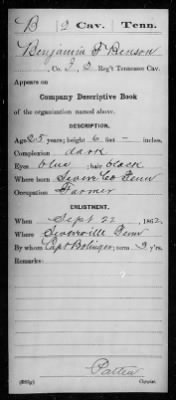 B 2 Cav. Tenn.
Benjamin F Benson
, Co. I, 2 Reg't Tennessee Cav.
Appears on
Company Descriptive Book
of the organization named above.
DESCRIPTION.
Age 25 years; height 6 feet - inches.
Complexion dark
Eyes blue ; hair black
Where born Sevier Co Tenn
Occupation Farmer
ENLISTMENT.
When Sept 22 , 1862.
Where Sevierville Tenn
By whom Capt Bolinger ; term 3 y'rs.
Remarks:
Patten
Copyist.